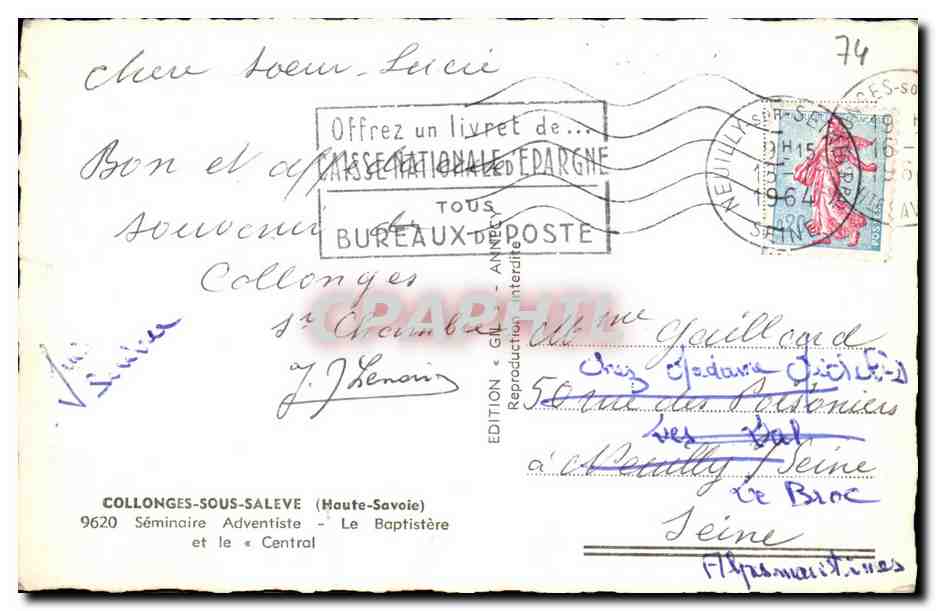 74
Chere soeur Lucie
Offrez un livret de...
CAISSE NATIONALE D'EPARGNE
TOUS
BUREAUX DE POSTE
NEUILLY-SUR-SEINE
9H15
1964
SEINE
0,20
POSTES
Bon et
souvenir de
Collonges
sr Chambre
J. J Lenoir
CPAPHIL
EDITION « GIL » - ANNECY
Reproduction interdite
Mme Gaillard
Chez Madame
50 rue des Poissoniers
Les Bal
à Neuilly / Seine
Le Broc
Seine
Alpes maritimes
COLLONGES-SOUS-SALEVE (Haute-Savoie)
9620 Séminaire Adventiste - Le Baptistère
et le « Central